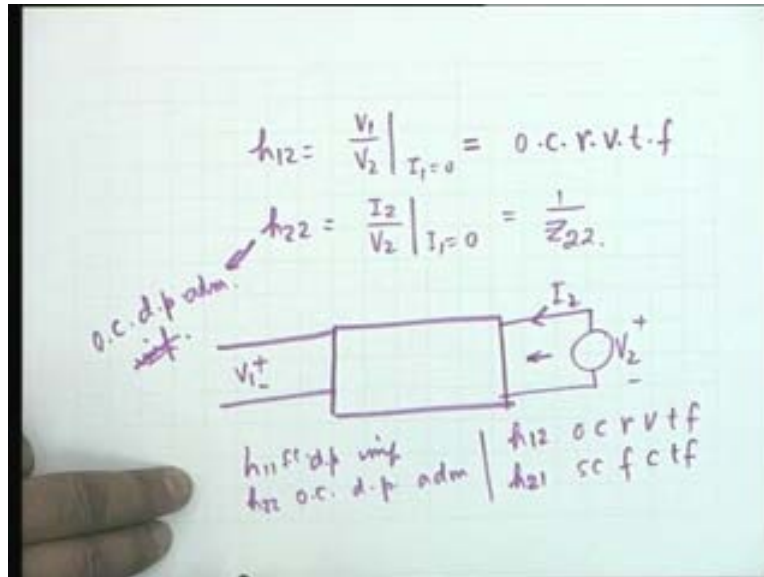 h12 = V1/V2 | I1=0 = o.c.r.v.t.f
h22 = I2/V2 | I1=0 = 1/Z22.
o.c. d.p adm.
I2
V1 + -
V2 + -
h11 sc d.p imp
h22 o.c. d.p adm
h12 o c r v t f
h21 sc f c t f